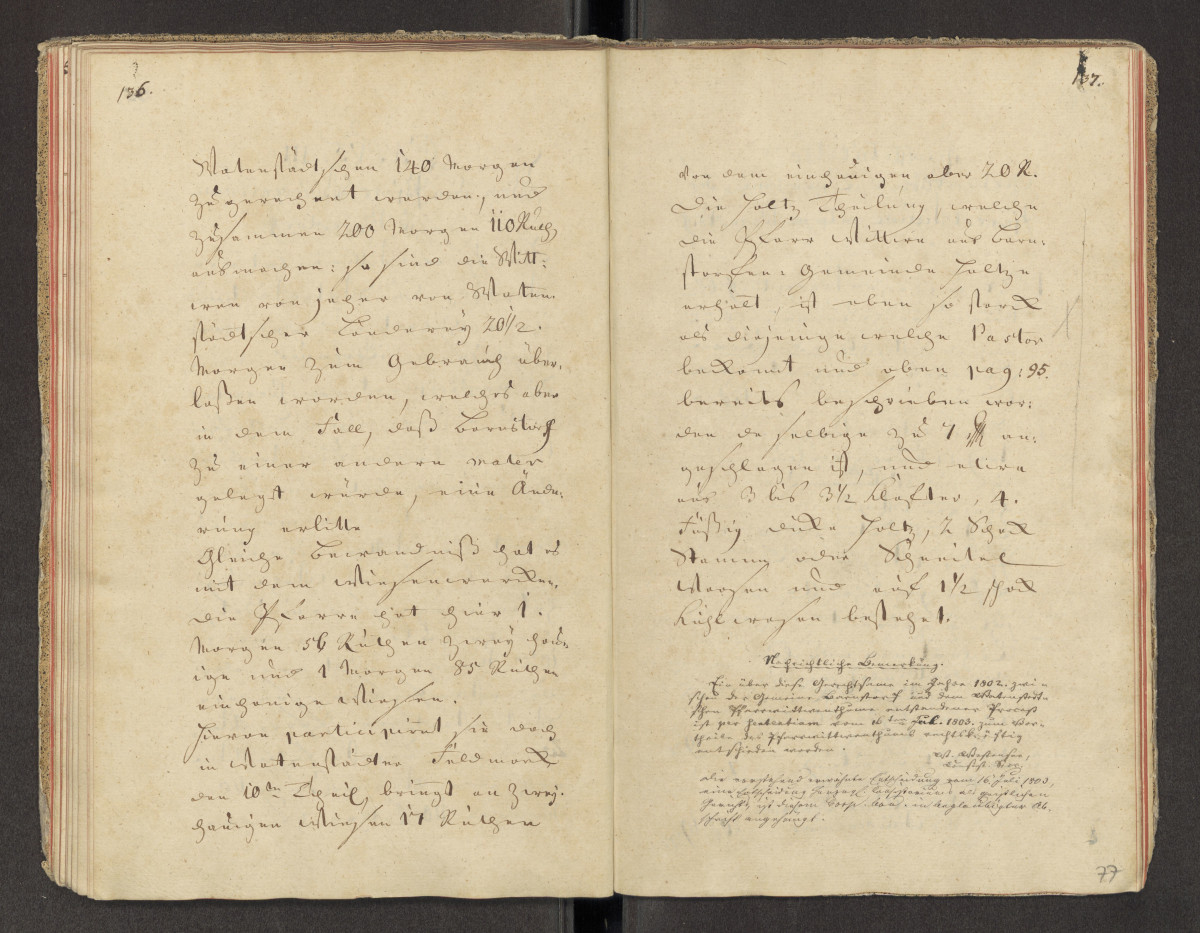 136.
Watenstädtschen 140 Morgen
zugerechnet werden, und
zusammen 200 Morgen 110 Ruth.
ausmachen: so sind die Witt-
wen von jeher von Waten-
städtscher Länderey 20 1/2.
Morgen zum Gebrauch über-
laßen worden, welches aber
in dem Fall, daß Barnstorf
zu einer andern mater
gelegt würde, eine Ände-
rung erlitte
Gleiche Bewandniß hat es
mit dem Wiesenwercke.
Die Pfarre hat hier 1.
Morgen 56 Ruthen zwey hau-
ige und 1 Morgen 85 Ruthen
einhauige Wiesen.
Hievon participirt sie doch
in Watenstädter Feldmarck
den 10ten Theil, bringt an zwey-
hauigen Wiesen 17 Ruthen
137.
Von dem einhauigen aber 20 R.
Die Holtz Theilung, welche
die Pfarr Wittwe aus Barn-
storfer Gemeinde Holtze
erhält, ist eben so starck
als diejenige welche Pastor
bekomt und oben pag: 95.
bereits beschrieben wor-
den daselbige zu 7 an-
geschlagen ist, und etwa
aus 3 bis 3 1/2 Klafter, 4.
Füßig dicke Holtz, 2 Schock
Stamm oder Scheitel
Wasen und auf 1 1/2 schock
Kuhlwasen bestehet.
Nachrichtliche Bemerkung.
Ein über diese Gerechtsame im Jahre 1802. zwi-
schen der Gemeine Barnstorf und dem Watenstedt-
schen Pfarrwittwenthume entstandener Proceß
ist per sententiam vom 16ten Jul. 1803. zum Vor-
theile des Pfarrwittwenthums rechtskräftig
entschieden worden.
Die vorstehend erwähnte Entscheidung vom 16. Juli 1803,
eine Entscheidung Herzogl. Consistoriums als geistlichen
Gerichts, ist diesem Corp. bon. in beglaubigter Ab-
schrift angehängt.
77